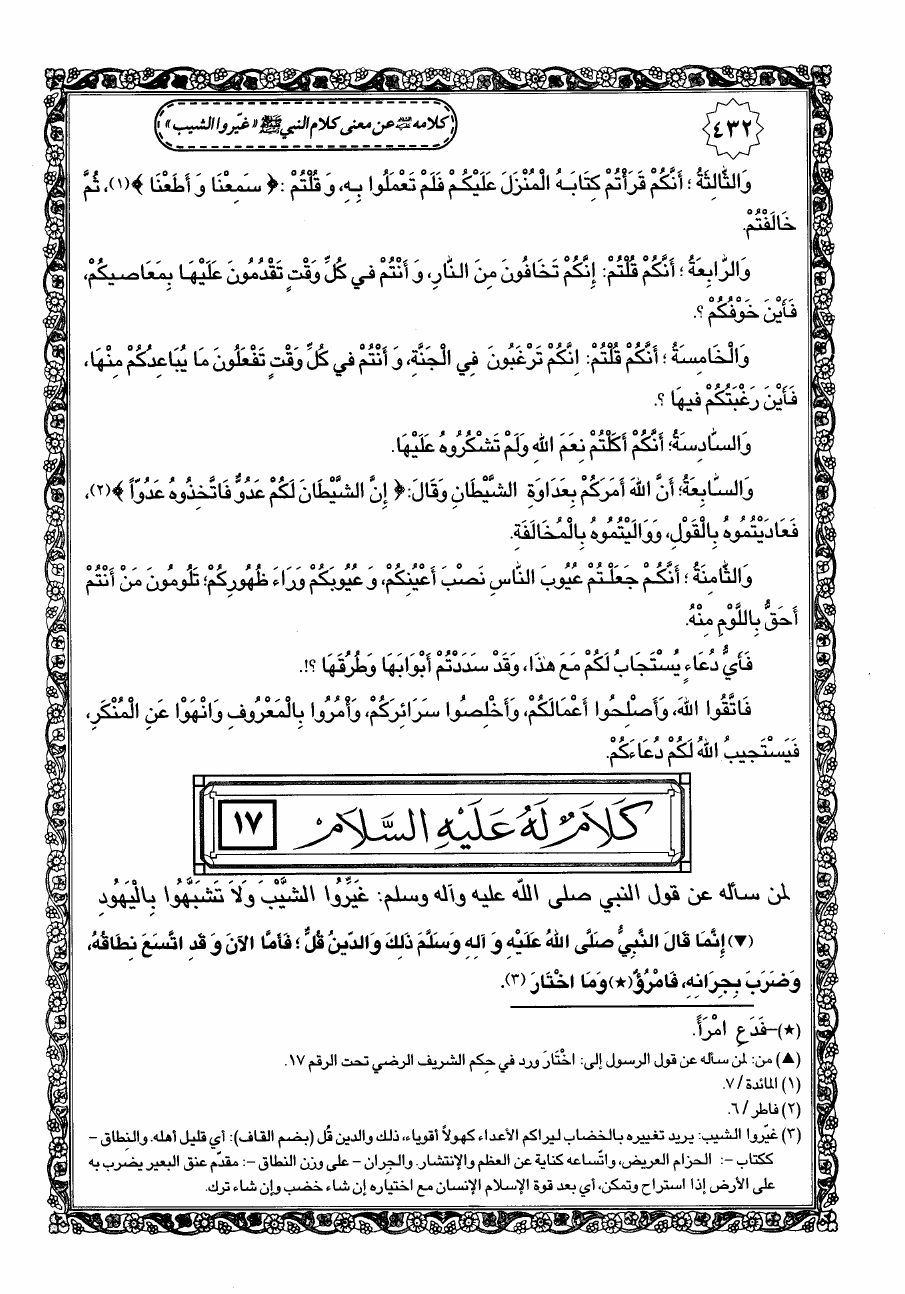 ٤٣٢
كلامه عن معنى كلام النبي ﷺ «غيّروا الشيب»
وَالثَّالِثَةُ ؛ أَنَّكُمْ قَرَأْتُمْ كِتَابَهُ الْمُنْزَلَ عَلَيْكُمْ فَلَمْ تَعْمَلُوا بِهِ، وَ قُلْتُمْ :﴿ سَمِعْنَا وَ أَطَعْنَا ﴾(١)، ثُمَّ
خَالَفْتُمْ.
وَالرَّابِعَةُ ؛ أَنَّكُمْ قُلْتُمْ: إِنَّكُمْ تَخَافُونَ مِنَ النَّارِ، وَ أَنْتُمْ في كُلِّ وَقْتٍ تَقْدُمُونَ عَلَيْهَا بِمَعَاصيكُمْ،
فَأَيْنَ خَوْفُكُمْ ؟.
وَالْخَامِسَةُ ؛ أَنَّكُمْ قُلْتُمْ: اِنَّكُمْ تَرْغَبُونَ فِي الْجَنَّةِ، وَ أَنْتُمْ في كُلِّ وَقْتٍ تَفْعَلُونَ مَا يُبَاعِدُكُمْ مِنْهَا،
فَأَيْنَ رَغْبَتُكُمْ فيهَا ؟.
وَالسَّادِسَةُ؛ أَنَّكُمْ أَكَلْتُمْ نِعَمَ اللهِ وَلَمْ تَشْكُرُوهُ عَلَيْهَا.
وَالسَّابِعَةُ؛ أَنَّ اللهَ أَمَرَكُمْ بِعَدَاوَةِ الشَّيْطَانِ وَقَالَ:﴿ إِنَّ الشَّيْطَانَ لَكُمْ عَدُوٌّ فَاتَّخِذُوهُ عَدُوّاً ﴾(٢)،
فَعَادَيْتُمُوهُ بِالْقَوْلِ، وَوَالَيْتُمُوهُ بِالْمُخَالَفَةِ.
وَالثَّامِنَةُ ؛ أَنَّكُمْ جَعَلْتُمْ عُيُوبَ النَّاسِ نَصْبَ أَعْيُنِكُمْ، وَ عُيُوبَكُمْ وَرَاءَ ظُهُورِكُمْ؛ تَلُومُونَ مَنْ أَنْتُمْ
أَحَقُّ بِاللَّوْمِ مِنْهُ.
فَأَيُّ دُعَاءٍ يُسْتَجَابُ لَكُمْ مَعَ هٰذَا، وَقَدْ سَدَدْتُمْ أَبْوَابَهَا وَطُرُقَهَا ؟!.
فَاتَّقُوا اللهَ، وَأَصْلِحُوا أَعْمَالَكُمْ، وَأَخْلِصُوا سَرَائِرَكُمْ، وَأْمُرُوا بِالْمَعْرُوفِ وَانْهَوْا عَنِ الْمُنْكَرِ،
فَيَسْتَجيبُ اللهُ لَكُمْ دُعَاءَكُمْ.
كَلَامٌ لَهُ عَلَيْهِ السَّلَامُ ١٧
لمن سأله عن قول النبي صلى اللّه عليه وآله وسلم: غَيِّرُوا الشَّيْبَ وَلَا تَشَبَّهُوا بِالْيَهُودِ
(▼) إِنَّمَا قَالَ النَّبِيُّ صَلَّى اللهُ عَلَيْهِ وَ آلِهِ وَسَلَّمَ ذَلِكَ وَالدّينُ قُلٌّ ؛ فَأَمَّا الآنَ وَ قَدِ اتَّسَعَ نِطَاقُهُ،
وَضَرَبَ بِجِرَانِهِ، فَامْرُؤٌ(★)وَمَا اخْتَارَ (٣).
(★)-فَدَعِ امْرَأً.
(▲) من: لمن سأله عن قول الرسول إلى: اخْتَارَ ورد في حِكم الشريف الرضي تحت الرقم ١٧.
(١) المائدة / ٧.
(٢) فاطر / ٦.
(٣) غيّروا الشيب: يريد تغييره بالخضاب ليراكم الأعداء كهولاً أقوياء، ذلك والدين قُل (بضم القاف): أي قليل أهله. والنِطاق -
ككتاب -: الحزام العريض، واتّساعه كناية عن العظم والإنتشار. والجِران - على وزن النطاق -: مقدّم عنق البعير يضرب به
على الأرض إذا استراح وتمكن، أي بعد قوة الإسلام الإنسان مع اختياره إن شاء خضب وإن شاء ترك.